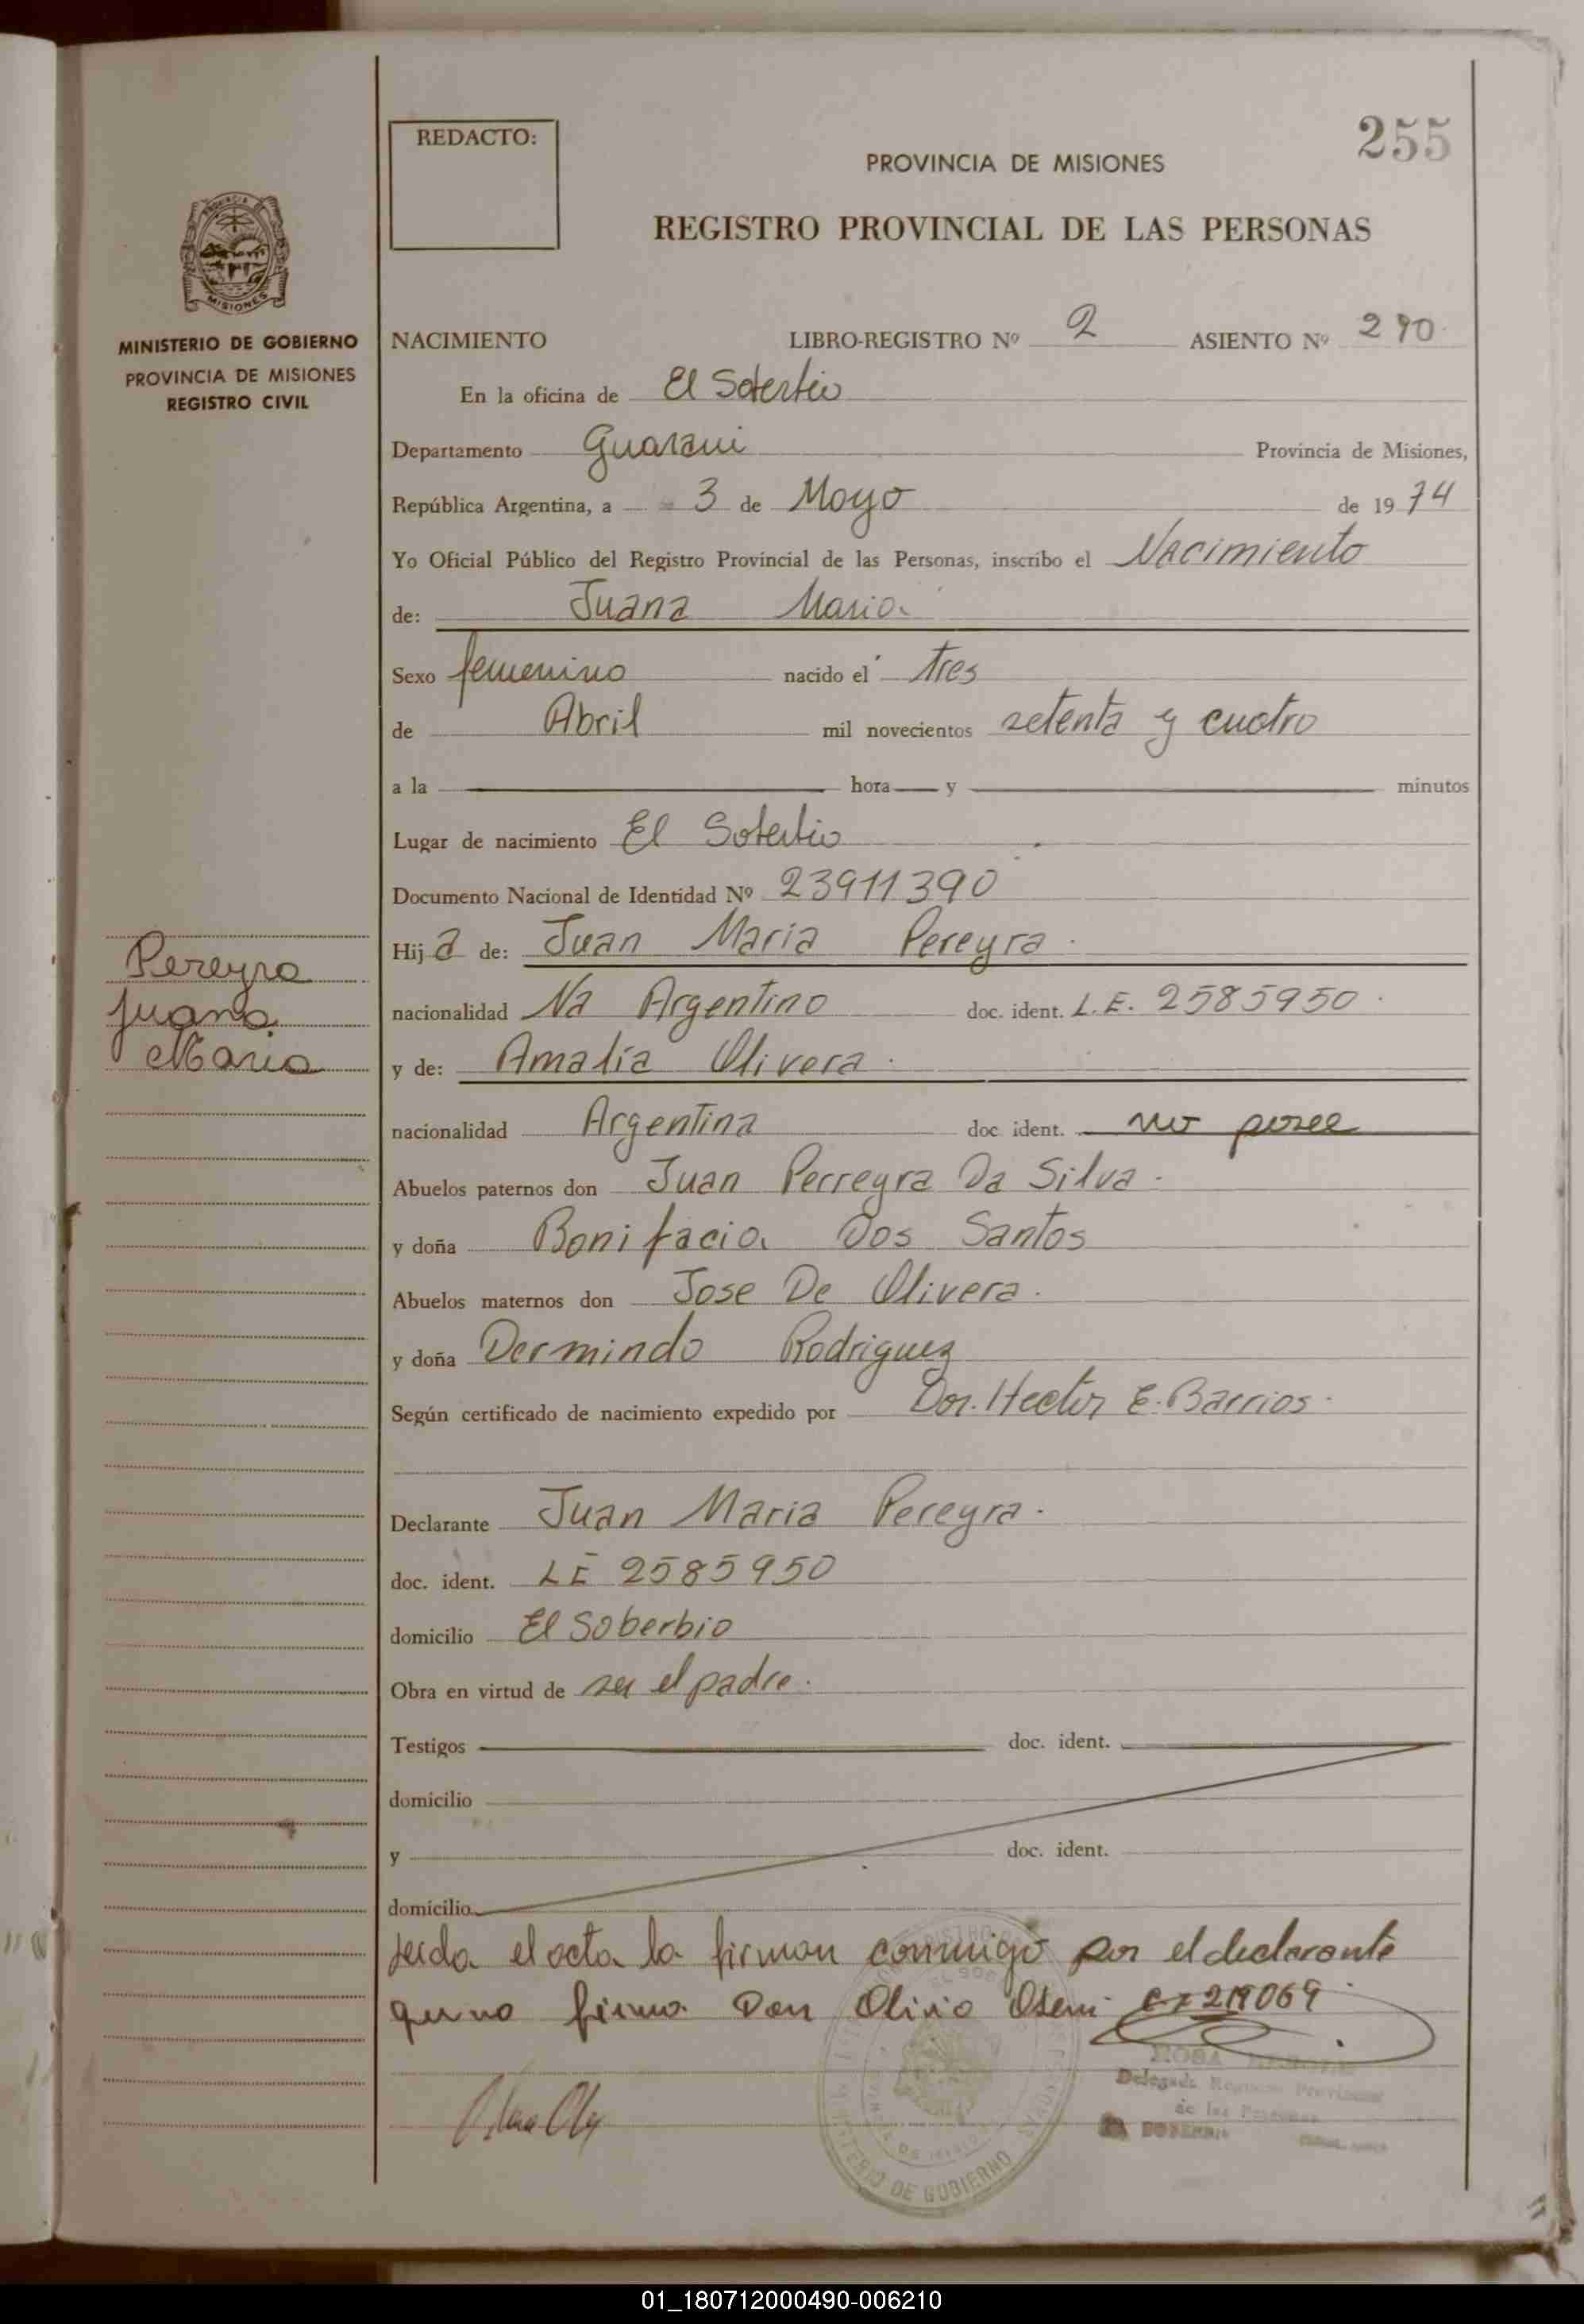 255
REDACTO:
PROVINCIA DE MISIONES
REGISTRO PROVINCIAL DE LAS PERSONAS
MISIONES
MINISTERIO DE GOBIERNO
PROVINCIA DE MISIONES
REGISTRO CIVIL
NACIMIENTO LIBRO-REGISTRO Nº 2 ASIENTO Nº 290
En la oficina de El Soberbio
Departamento Guarani Provincia de Misiones,
República Argentina, a 3 de Mayo de 1974
Yo Oficial Público del Registro Provincial de las Personas, inscribo el Nacimiento
de: Juana Maria
Sexo femenino nacido el tres
de Abril mil novecientos setenta y cuatro
a la hora y minutos
Lugar de nacimiento El Soberbio
Documento Nacional de Identidad Nº 23911390
Hija de: Juan Maria Pereyra
Pereyra
Juana
Maria
nacionalidad Na Argentino doc. ident. L.E. 2585950
y de: Amalia Olivera
nacionalidad Argentina doc ident. no posee
Abuelos paternos don Juan Perreyra Da Silva
y doña Bonifacia Dos Santos
Abuelos maternos don Jose De Olivera
y doña Dermindo Rodriguez
Según certificado de nacimiento expedido por Dor. Hector E. Barrios
Declarante Juan Maria Pereyra
doc. ident. LE 2585950
domicilio El Soberbio
Obra en virtud de ser el padre
Testigos doc. ident.
domicilio
y doc. ident.
domicilio
Leida el acta la firman conmigo por el declarante
que no firma Don Olivio
MINISTERIO DE GOBIERNO
Delegada Registro Provincial
de las Personas
01_180712000490-006210